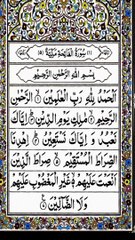 سُوْرَةُ الْفَاتِحَةِ مَكِّيَّةٌ
بِسْمِ اللّٰهِ الرَّحْمٰنِ الرَّحِيْمِ
اَلْحَمْدُ لِلّٰهِ رَبِّ الْعٰلَمِيْنَ ۝ الرَّحْمٰنِ
الرَّحِيْمِ ۝ مٰلِكِ يَوْمِ الدِّيْنِ ۝ اِيَّاكَ
نَعْبُدُ وَ اِيَّاكَ نَسْتَعِيْنُ ۝ اِهْدِنَا
الصِّرَاطَ الْمُسْتَقِيْمَ ۝ صِرَاطَ الَّذِيْنَ
اَنْعَمْتَ عَلَيْهِمْ ۝ غَيْرِ الْمَغْضُوْبِ عَلَيْهِمْ
وَلَا الضَّآلِّيْنَ ۝